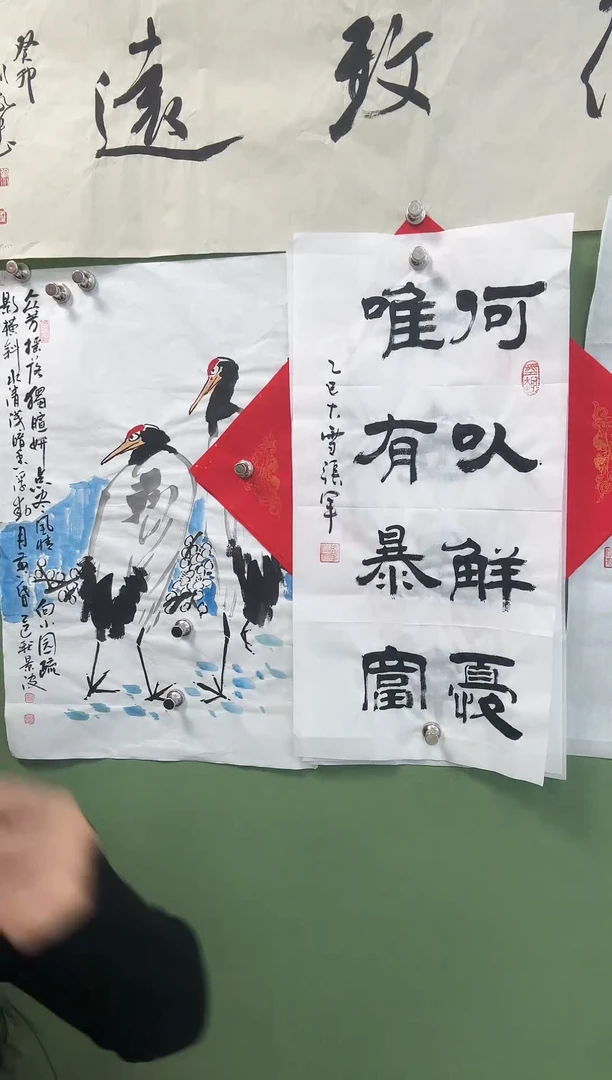 致遠
癸卯
何㕥觧憂
唯有暴富
乙巳大雪張軍
众芳摇落獨暄妍占尽風情向小园疏
影横斜水清浅暗香浮动月黄昏乙巳秋景波